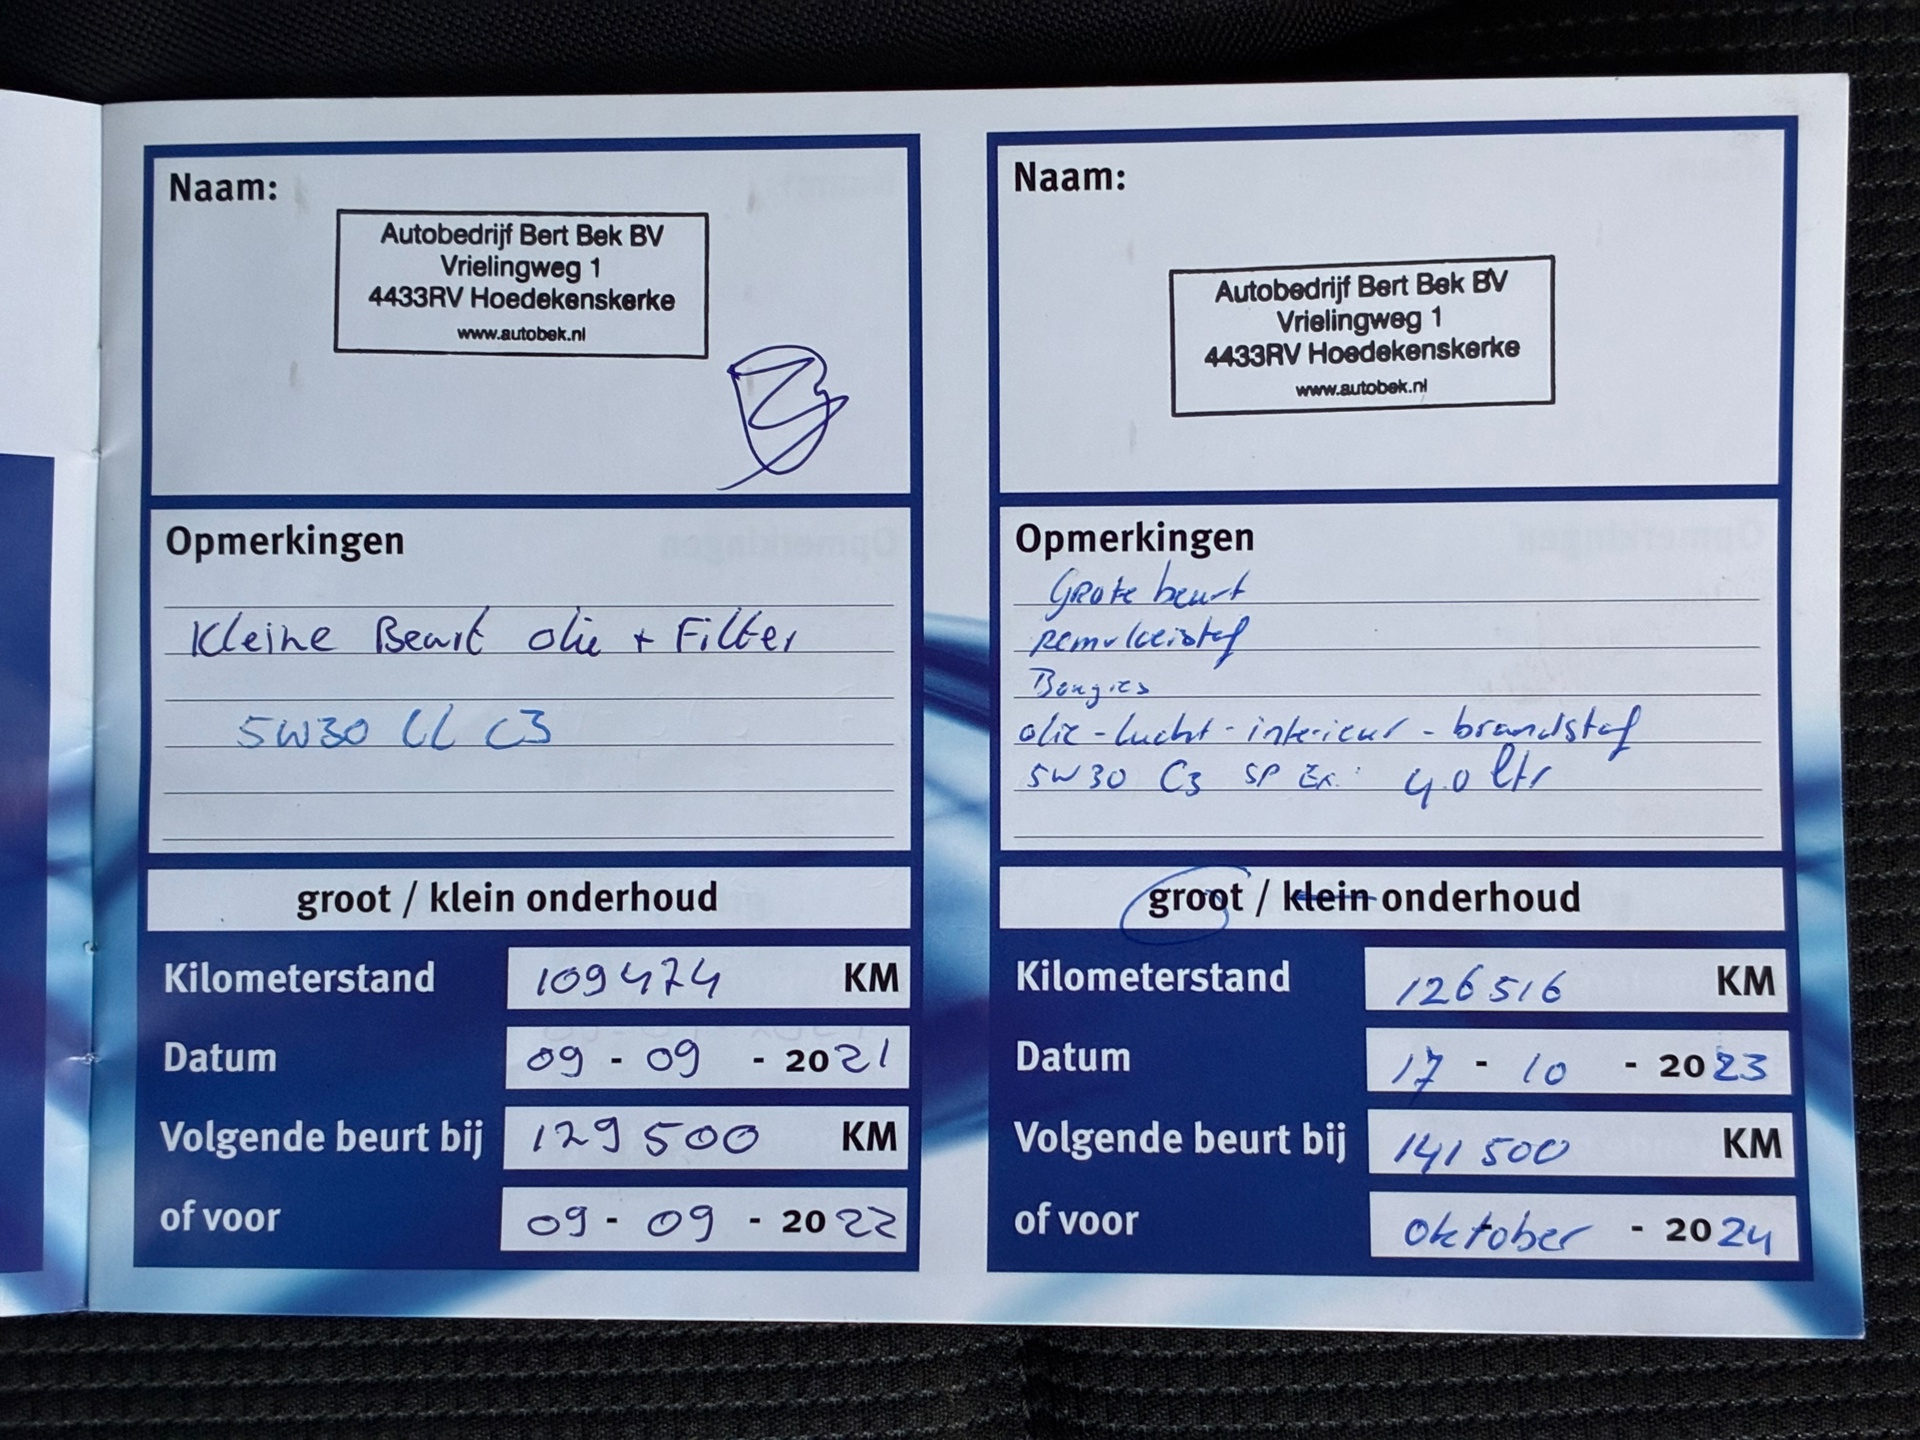 Naam:
Autobedrijf Bert Bek BV
Vrielingweg 1
4433RV Hoedekenskerke
www.autobek.nl
Opmerkingen
Kleine Beurt olie + Filter
5W30 LL C3
groot / klein onderhoud
Kilometerstand 109474 KM
Datum 09 - 09 - 2021
Volgende beurt bij 129500 KM
of voor 09 - 09 - 2022
Naam:
Autobedrijf Bert Bek BV
Vrielingweg 1
4433RV Hoedekenskerke
www.autobek.nl
Opmerkingen
Grote beurt
remvloeistof
Bougies
olie - lucht - interieur - brandstof
5W30 C3 SP 4.0 ltr
groot / klein onderhoud
Kilometerstand 126516 KM
Datum 17 - 10 - 2023
Volgende beurt bij 141500 KM
of voor oktober - 2024